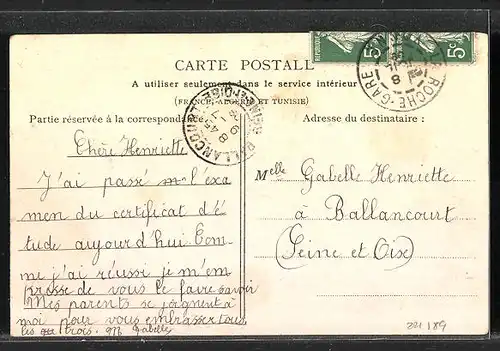 5c 5c
CARTE POSTALE
A utiliser seulement dans le service intérieur
(FRANCE, ALGÉRIE ET TUNISIE)
Partie réservée à la correspondance
Adresse du destinataire :
ROCHE-GARE
BALLANCOURT
Chère Henriette
J'ai passé l'exa
men du certificat d'é
tude aujourd'hui Com
me j'ai réussi je m'em
presse de vous le faire savoir
Mes parents se joignent à
moi pour vous embrasser tous
les trois. Gabelle
Melle Gabelle Henriette
à Ballancourt
(Seine et Oise)
221189